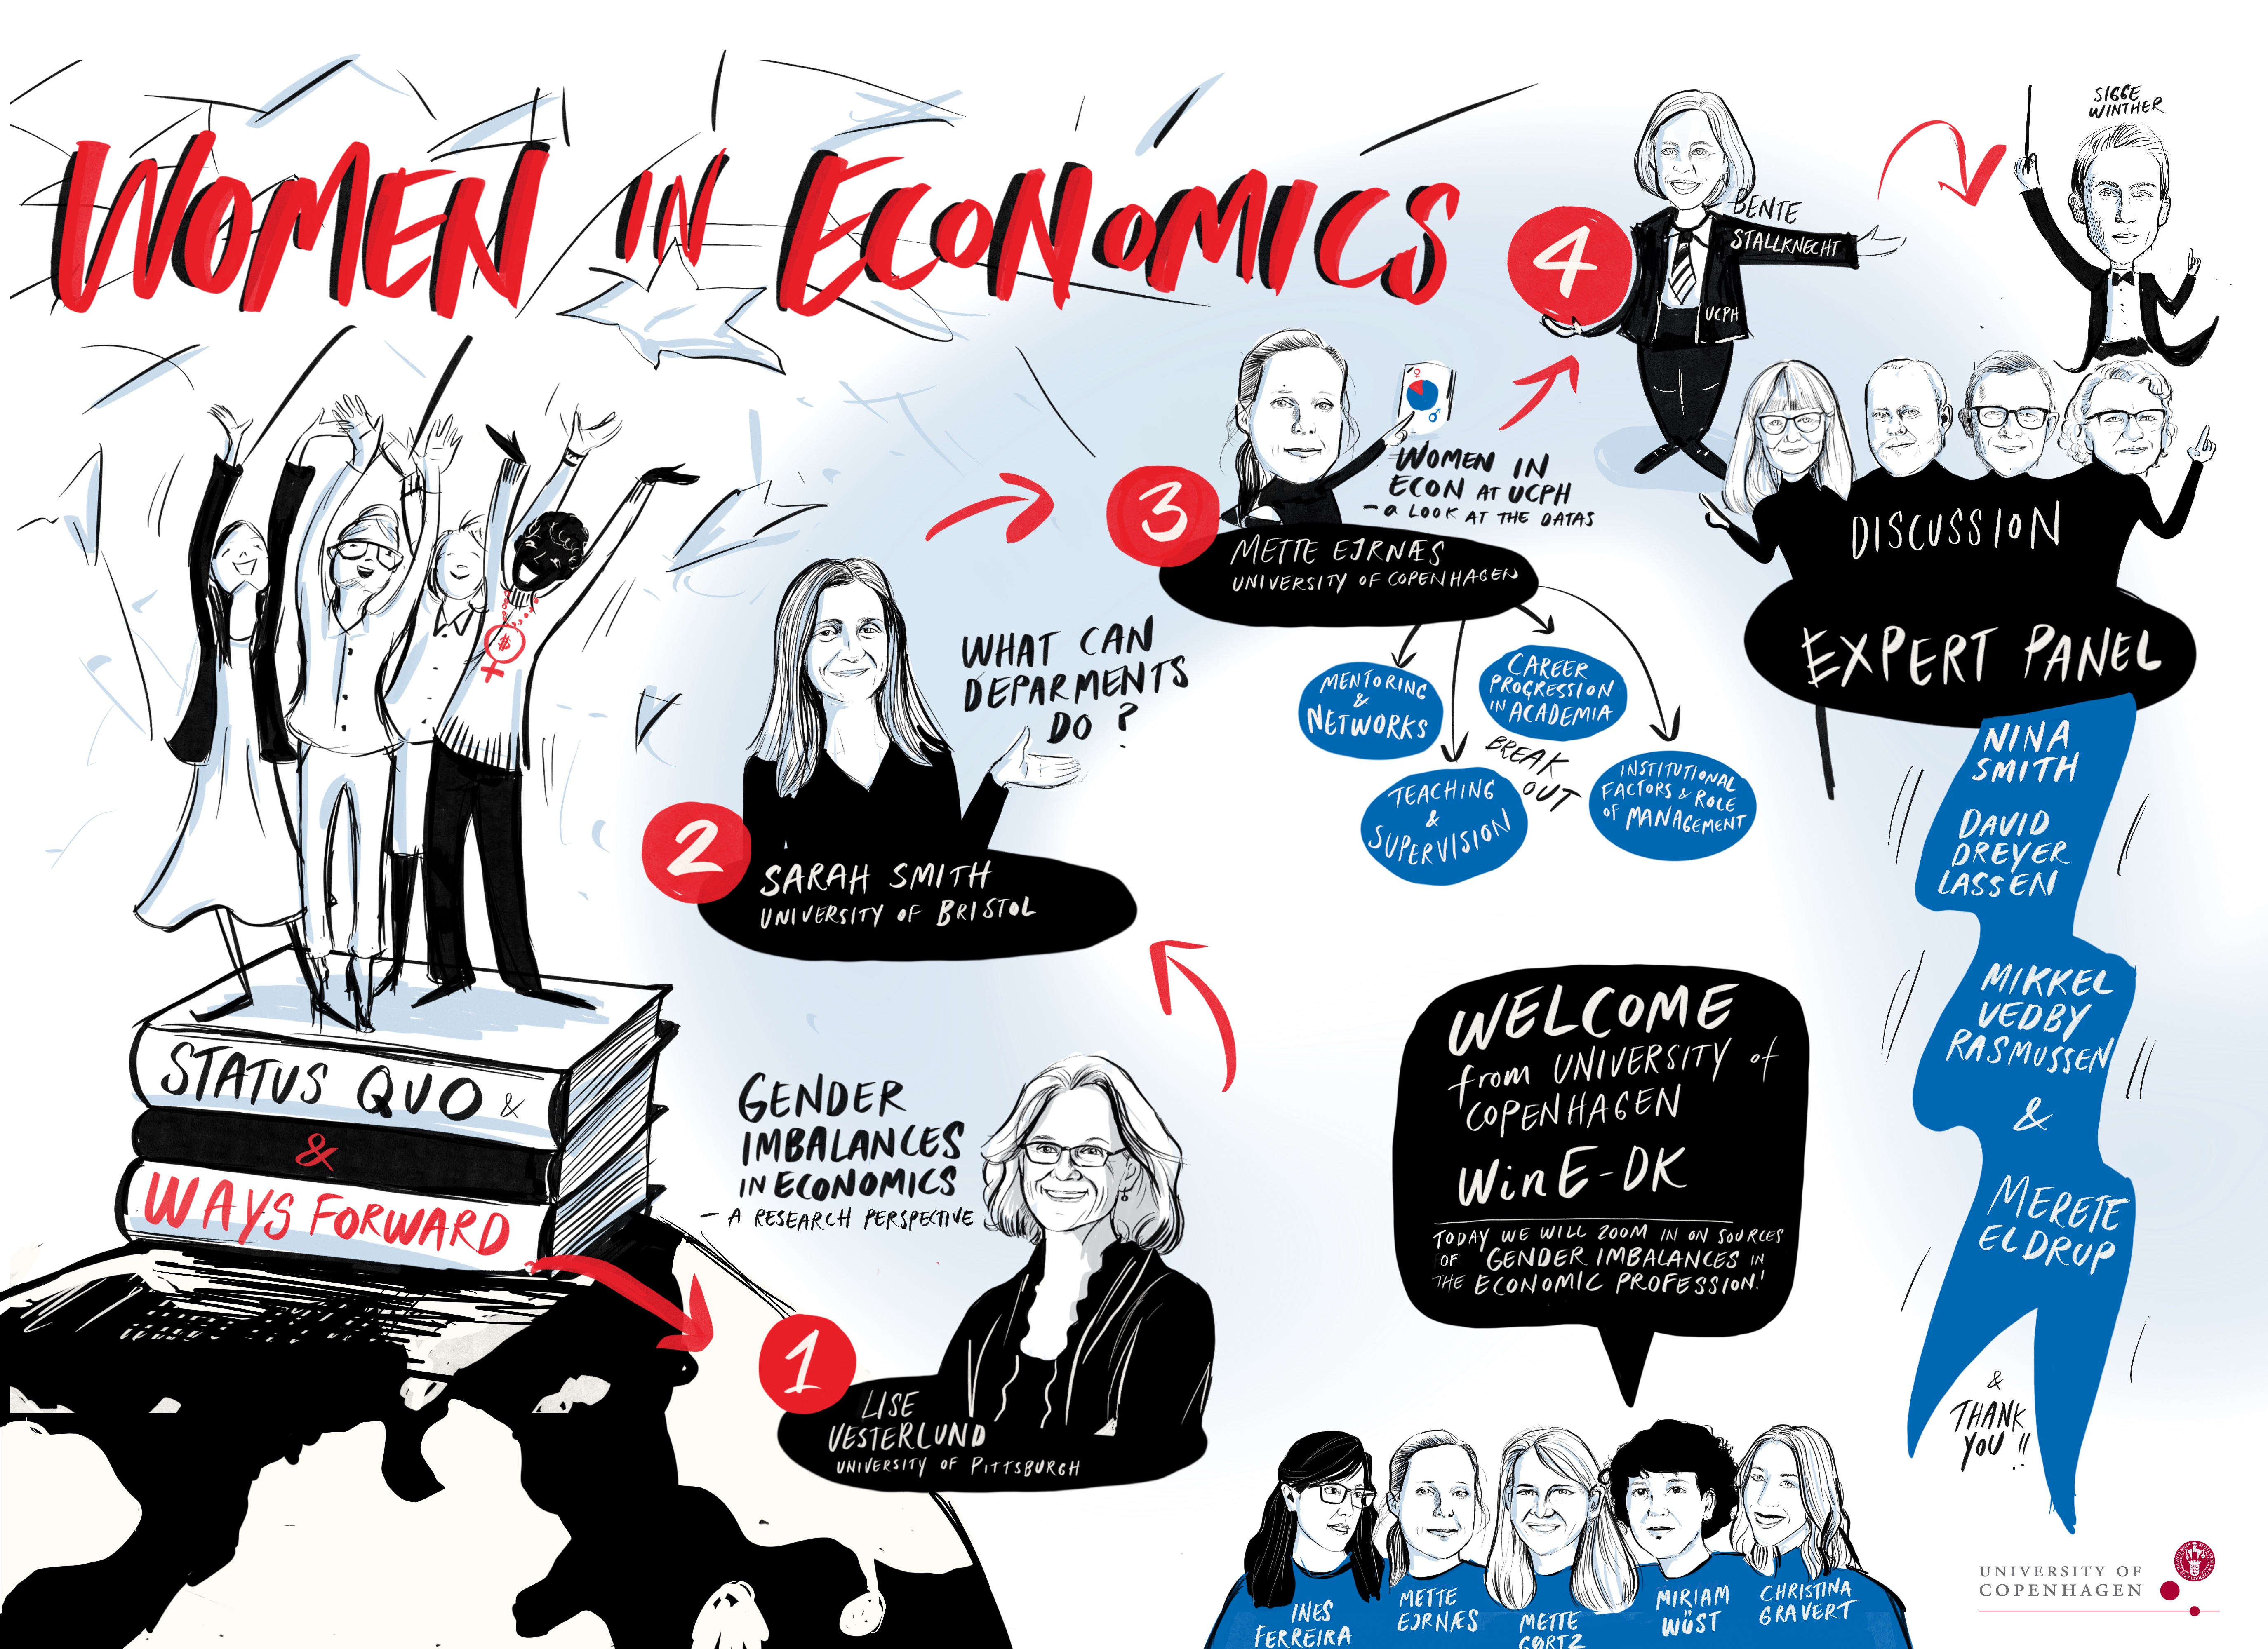 WOMEN IN ECONOMICS
STATUS QUO &
&
WAYS FORWARD
1
GENDER
IMBALANCES
IN ECONOMICS
- A RESEARCH PERSPECTIVE
LISE
VESTERLUND
UNIVERSITY OF PITTSBURGH
2
WHAT CAN
DEPARMENTS
DO ?
SARAH SMITH
UNIVERSITY OF BRISTOL
3
WOMEN IN
ECON AT UCPH
- a LOOK AT THE DATAS
METTE EJRNÆS
UNIVERSITY OF COPENHAGEN
MENTORING
&
NETWORKS
CAREER
PROGRESSION
IN ACADEMIA
BREAK
OUT
TEACHING
&
SUPERVISION
INSTITUTIONAL
FACTORS & ROLE
OF MANAGEMENT
4
BENTE
STALLKNECHT
UCPH
SIGGE
WINTHER
DISCUSSION
EXPERT PANEL
NINA
SMITH
DAVID
DREYER
LASSEN
MIKKEL
VEDBY
RASMUSSEN
&
MERETE
ELDRUP
&
THANK
YOU !!
WELCOME
from UNIVERSITY of
COPENHAGEN
WinE-DK
TODAY WE WILL ZOOM IN ON SOURCES
OF GENDER IMBALANCES IN
THE ECONOMIC PROFESSION!
INES
FERREIRA
METTE
EJRNÆS
METTE
GØRTZ
MIRIAM
WÜST
CHRISTINA
GRAVERT
UNIVERSITY OF
COPENHAGEN